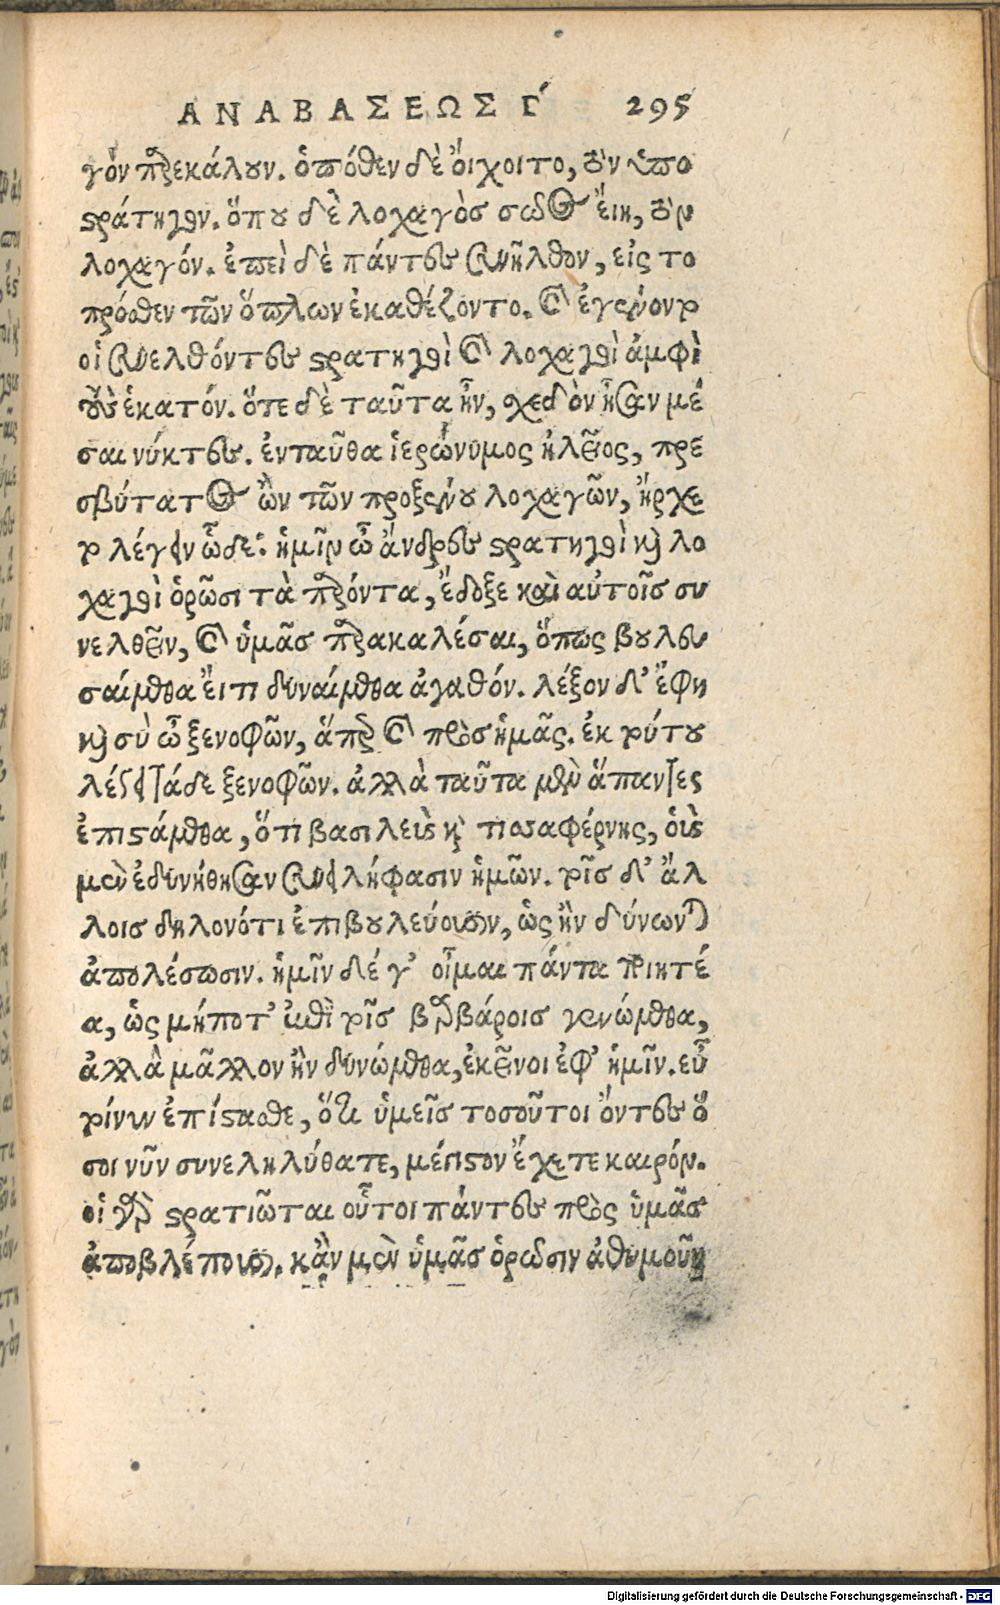 ΑΝΑΒΑΣΕΩΣ Γ΄ 295
γὸν παρεκάλουν. ὁπόθεν δὲ οἴχοιτο, τὸν ὑπο
στράτηγον. ὅπου δὲ λοχαγὸσ σωὸς εἴη, τὸν
λοχαγόν. ἐπεὶ δὲ πάντες συνῆλθον, εἰς το
πρόσθεν τῶν ὅπλων ἐκαθέζοντο. καὶ ἐγένοντο
οἱ συνελθόντες στρατηγοὶ καὶ λοχαγοὶ ἀμφὶ
τοὺς ἑκατόν. ὅτε δὲ ταῦτα ἦν, σχεδὸν ἦσαν μέ
σαι νύκτες. ἐνταῦθα ἱερώνυμος ἠλεῖος, πρε
σβύτατος ὢν τῶν προξένου λοχαγῶν, ἤρχε
το λέγειν ὧδε· ἡμῖν ὦ ἄνδρες στρατηγοὶ καὶ λο
χαγοὶ ὁρῶσι τὰ παρόντα, ἔδοξε καὶ αὐτοῖσ συ
νελθεῖν, καὶ ὑμᾶσ παρακαλέσαι, ὅπως βουλευ
σαίμεθα εἴ τι δυναίμεθα ἀγαθόν. λέξον δ' ἔφη
καὶ σὺ ὦ ξενοφῶν, ἅπερ καὶ πρὸσ ἡμᾶς. ἐκ τούτου
λέγει τάδε ξενοφῶν. ἀλλὰ ταῦτα μὲν ἅπαντες
ἐπιστάμεθα, ὅτι βασιλεὺς καὶ τισσαφέρνης, οὓς
μὲν ἐδυνήθησαν συνειλήφασιν ἡμῶν. τοῖσ δ' ἄλ
λοισ δηλονότι ἐπιβουλεύουσιν, ὡς ἢν δύνωνται
ἀπολέσωσιν. ἡμῖν δέ γ' οἶμαι πάντα ποιητέ
α, ὡς μήποτ' ἐπὶ τοῖσ βαρβάροισ γενώμεθα,
ἀλλὰ μᾶλλον ἢν δυνώμεθα, ἐκεῖνοι ἐφ' ἡμῖν. εὖ
τοίνυν ἐπίστασθε, ὅτι ὑμεῖσ τοσοῦτοι ὄντες ὅ
σοι νῦν συνεληλύθατε, μέγιστον ἔχετε καιρόν.
οἱ γὰρ στρατιῶται οὗτοι πάντες πρὸς ὑμᾶσ
ἀποβλέπουσι. κἂν μὲν ὑμᾶσ ὁρῶσιν ἀθυμοῦν
Digitalisierung gefördert durch die Deutsche Forschungsgemeinschaft - DFG